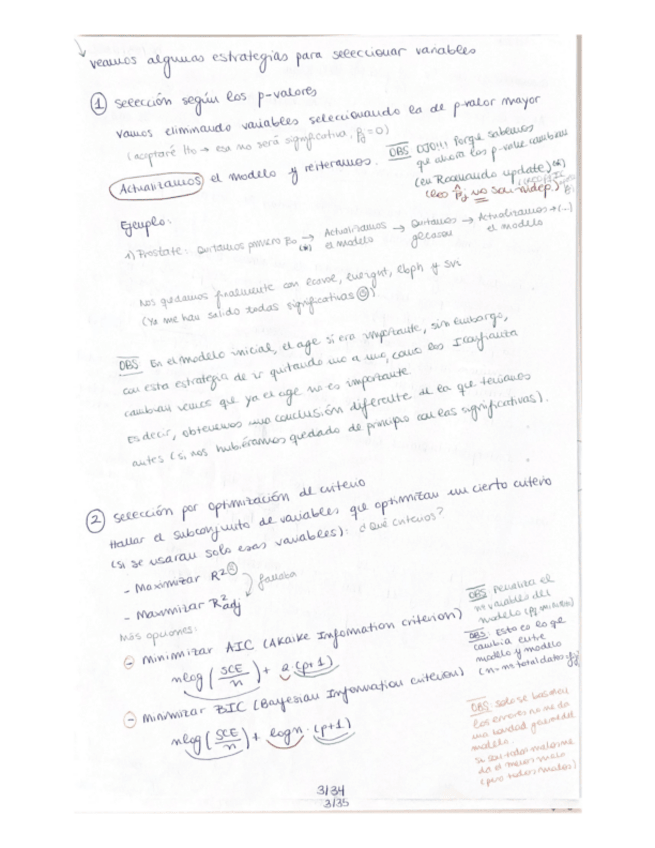 veamos algunas estrategias para seleccionar variables
① selección según los p-valores
vamos eliminando variables seleccionando la de p-valor mayor
(aceptaré H₀ → esa no será significativa, βj = 0)
Actualizamos el modelo y reiteramos.
OBS OJO!!! Porque sabemos
que ahora los p-value cambian
(en Rcmdr update)
(los β̂j no son indep.)
Ejemplo:
1) Prostate: Quitamos primero → Actualizamos el modelo → Quitamos gleason → Actualizamos el modelo → (...)
Nos quedamos finalmente con lcavol, lweight, lbph y svi
(Ya me han salido todas significativas ☺)
OBS En el modelo inicial, el age si era importante, sin embargo,
con esta estrategia de ir quitando uno a uno, como los I confianza
cambian vemos que ya el age no es importante
Es decir, obtenemos una conclusión diferente de la que teníamos
antes (si nos hubiéramos quedado de principio con las significativas).
② selección por optimización de criterio
Hallar el subconjunto de variables que optimizan un cierto criterio
(si se usaran solo esas variables): ¿Qué criterios?
- Maximizar R²
- Maximizar R²adj
fallaba
Más opciones:
- Minimizar AIC (Akaike Information criterion)
n log (SCE/n) + 2 (p+1)
- Minimizar BIC (Bayesian Information criterion)
n log (SCE/n) + log n · (p+1)
OBS Penaliza el
nº variables del
modelo
OBS. Esto es lo que
cambia entre
modelo y modelo
(n = nº total datos fijo)
OBS solo se basan en
los errores no me da
una bondad general del
modelo.
si son todos malos me
da el menos malo
(pero todos malos)
3/34
3/35